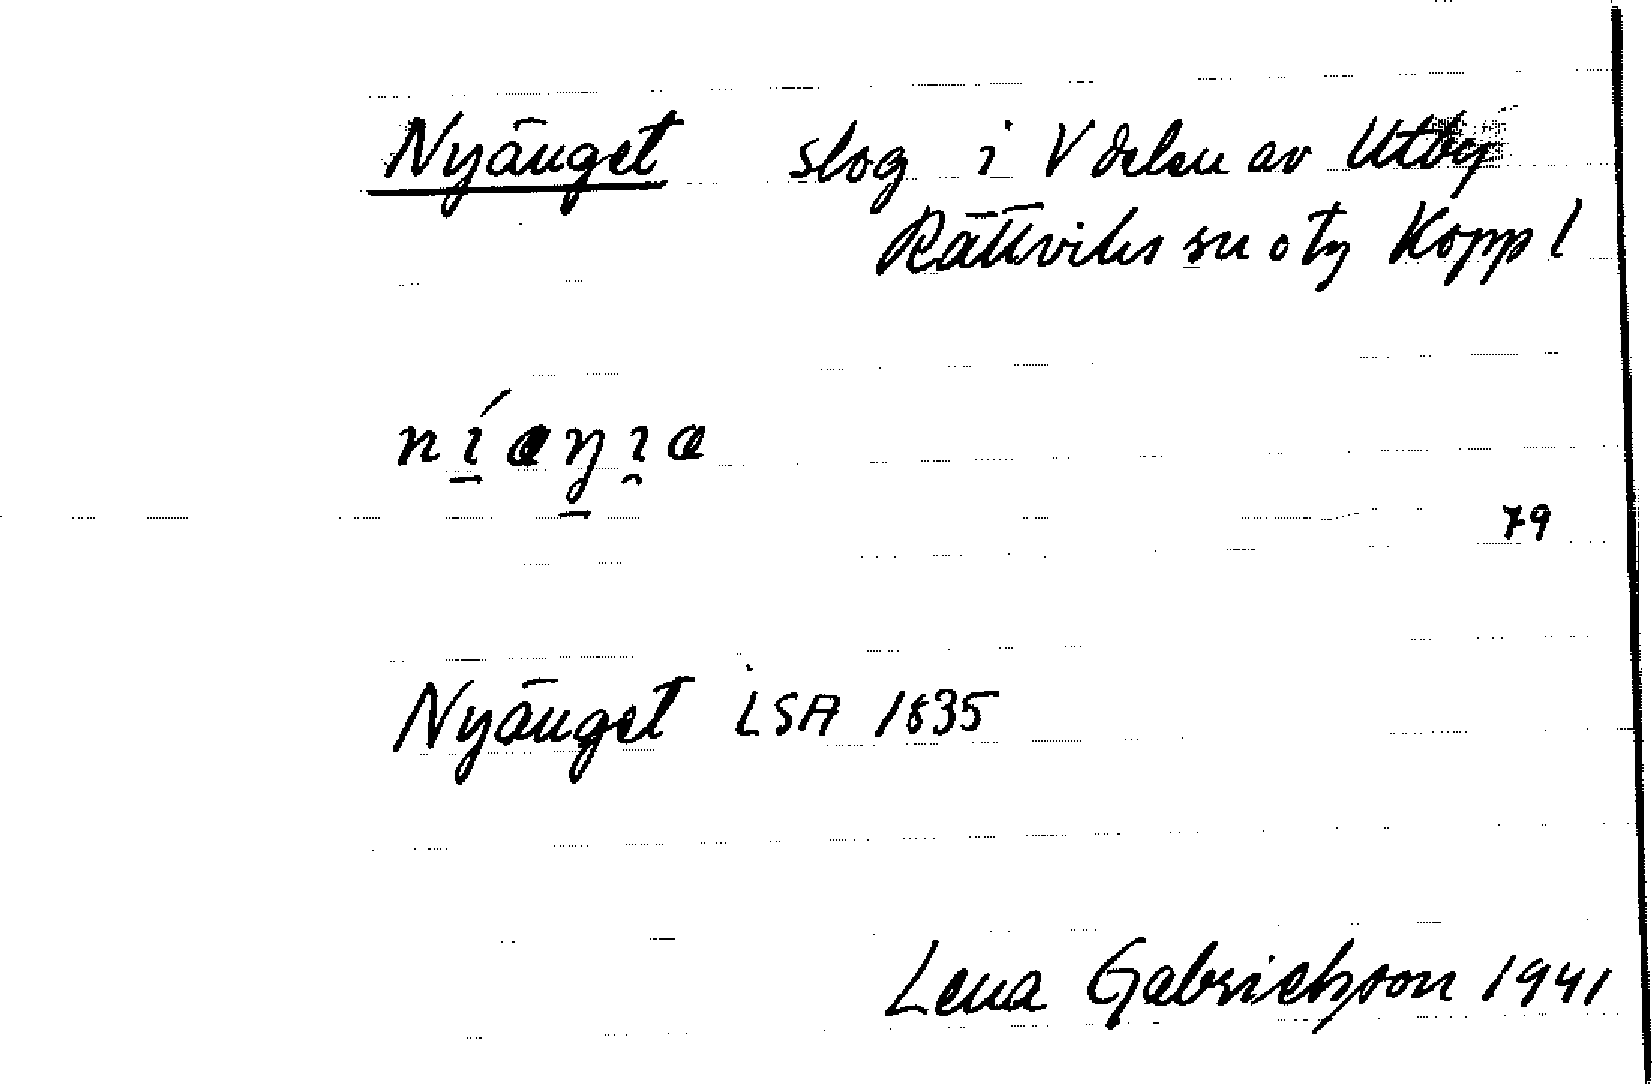 Nyänget slog i V delen av Utby
Rättviks sn o tg Kopp l
79
Nyänget LSA 1835
Lena Gabrielsson 1941